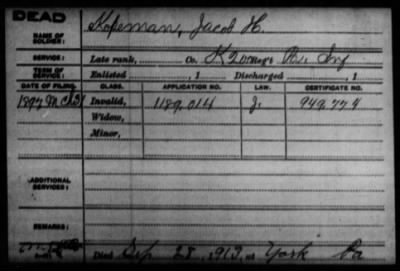 DEAD
NAME OF SOLDIER: Kopeman, Jacob H.
SERVICE: Late rank, Co. K 200 Reg't Pa. Inf
TERM OF SERVICE: Enlisted , 1 Discharged , 1
DATE OF FILING. CLASS. APPLICATION NO. LAW. CERTIFICATE NO.
1897 Mch 31 Invalid, 1189,014 J. 949,774
Widow,
Minor,
ADDITIONAL SERVICES:
REMARKS:
Died Sep 28, 1913, at York Pa